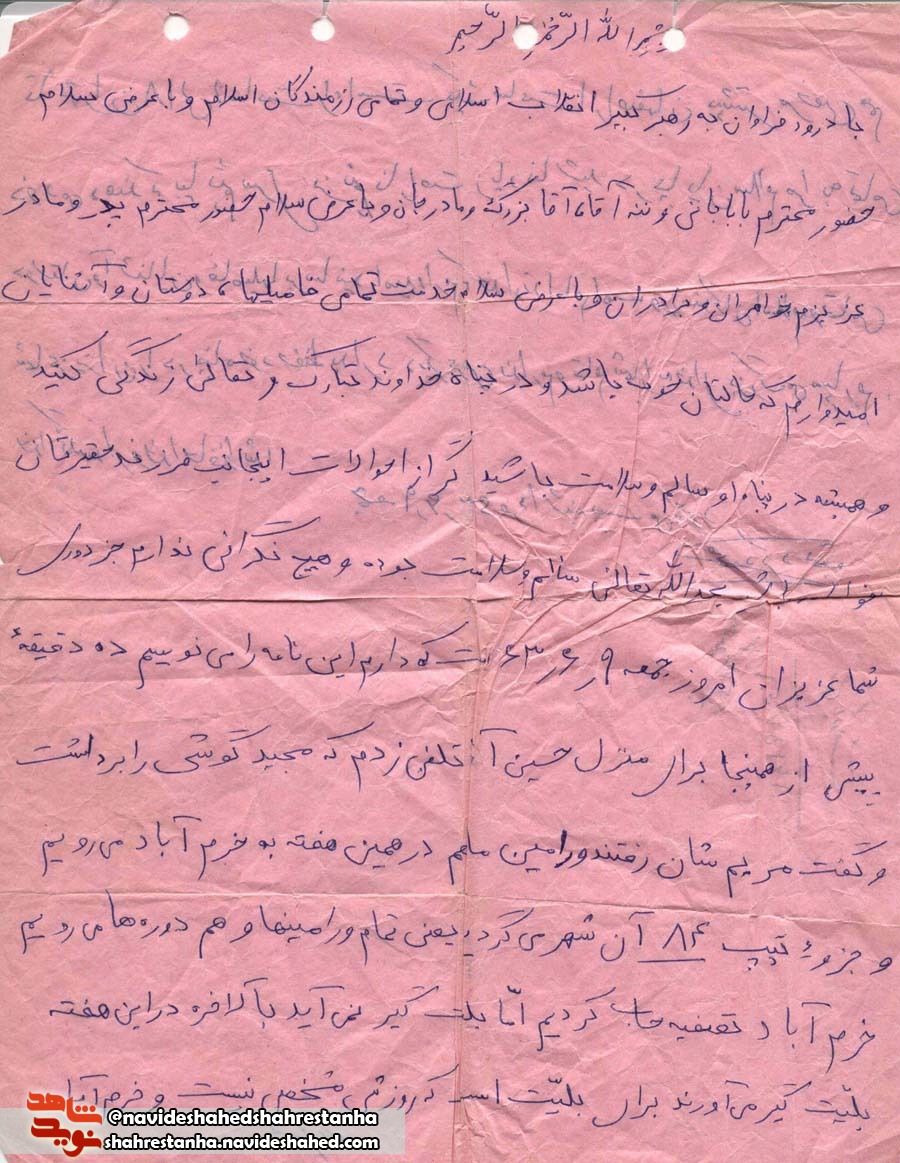 بسم الله الرحمن الرحیم
با درود فراوان به رهبر کبیر انقلاب اسلامی و تمامی رزمندگان اسلام و با عرض سلام
حضور محترم باباجانی و ننه آقا، آقا بزرگ و مادرجان و با عرض سلام حضور محترم پدر و مادر
عزیزم خواهران و برادران و با عرض سلام خدمت تمامی فامیلها، دوستان و آشنایان
امیدوارم که حالتان خوب باشد و در پناه خداوند تبارک و تعالی زندگی کنید
و همیشه در پناه او سالم و سلامت باشید گر از احوالات اینجانب فرزند حقیرتان
بحمدالله تعالی سالم و سلامت بوده و هیچ نگرانی ندارم جز دوری
شما عزیزان امروز جمعه ۹ر۶ر۶۳ است که دارم این نامه را می نویسم ده دقیقهٔ
پیش از همینجا برای منزل حسین آقا تلفن زدم که مجید گوشی را برداشت
و گفت مریم شان رفتند ورامین ماهم در همین هفته به خرم آباد می رویم
و جزوهٔ تیپ ۸۴ آن شهر می گردیم یعنی تمام ورامینها و هم دوره ها می رویم
خرم آباد تصفیه حساب کردیم امّا بلت گیر نمی آید بالاخره در این هفته
بلیّت گیر می آورند برای بلیّت است که روزش مشخص نیست و خرم آباد
نوید شاهد
@navideshahedshahrestanha
shahrestanha.navideshahed.com